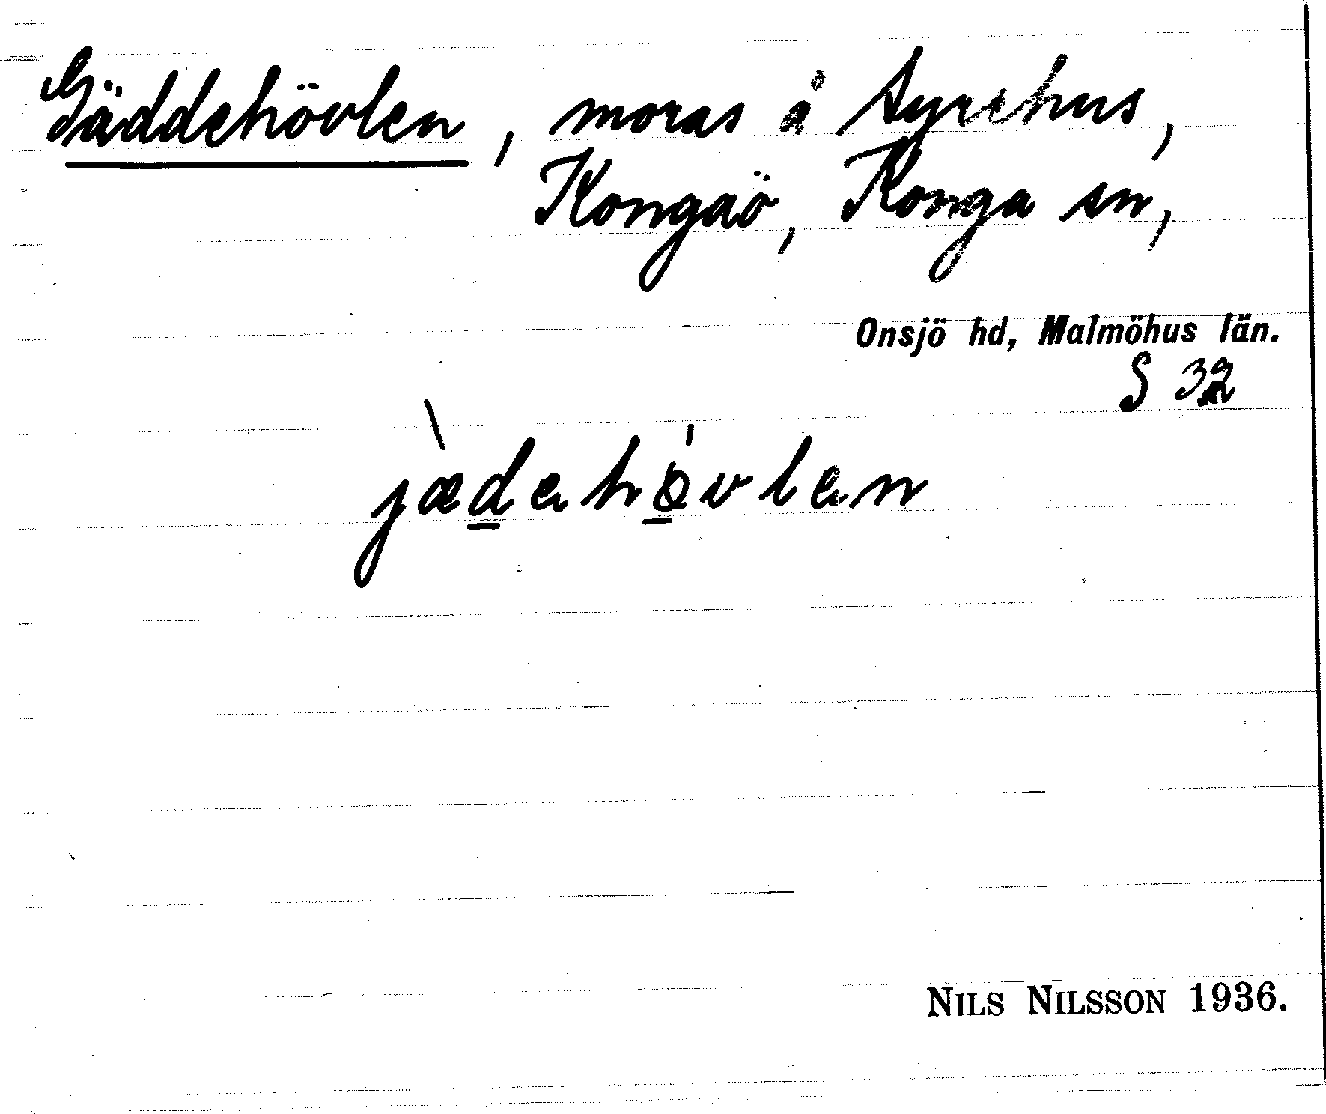 Gäddehövlen, moras å Syrehus,
Kongaö, Konga sn,
Onsjö hd, Malmöhus län.
S 32
jædehövlen
NILS NILSSON 1936.